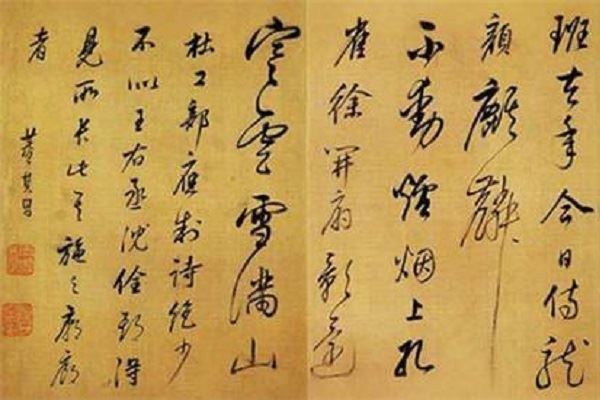 班去年今日侍龍
顏麒麟
不動爐烟上孔
雀徐開扇影還
寒雲雪滿山
杜工部應制詩絕少
不似王右丞沈佺期得
見所長此其施之廊廟
者
董其昌